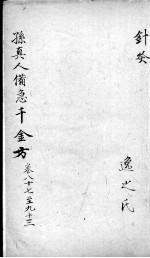 針灸
逸之氏
孫真人備急千金方 卷八十七至九十三